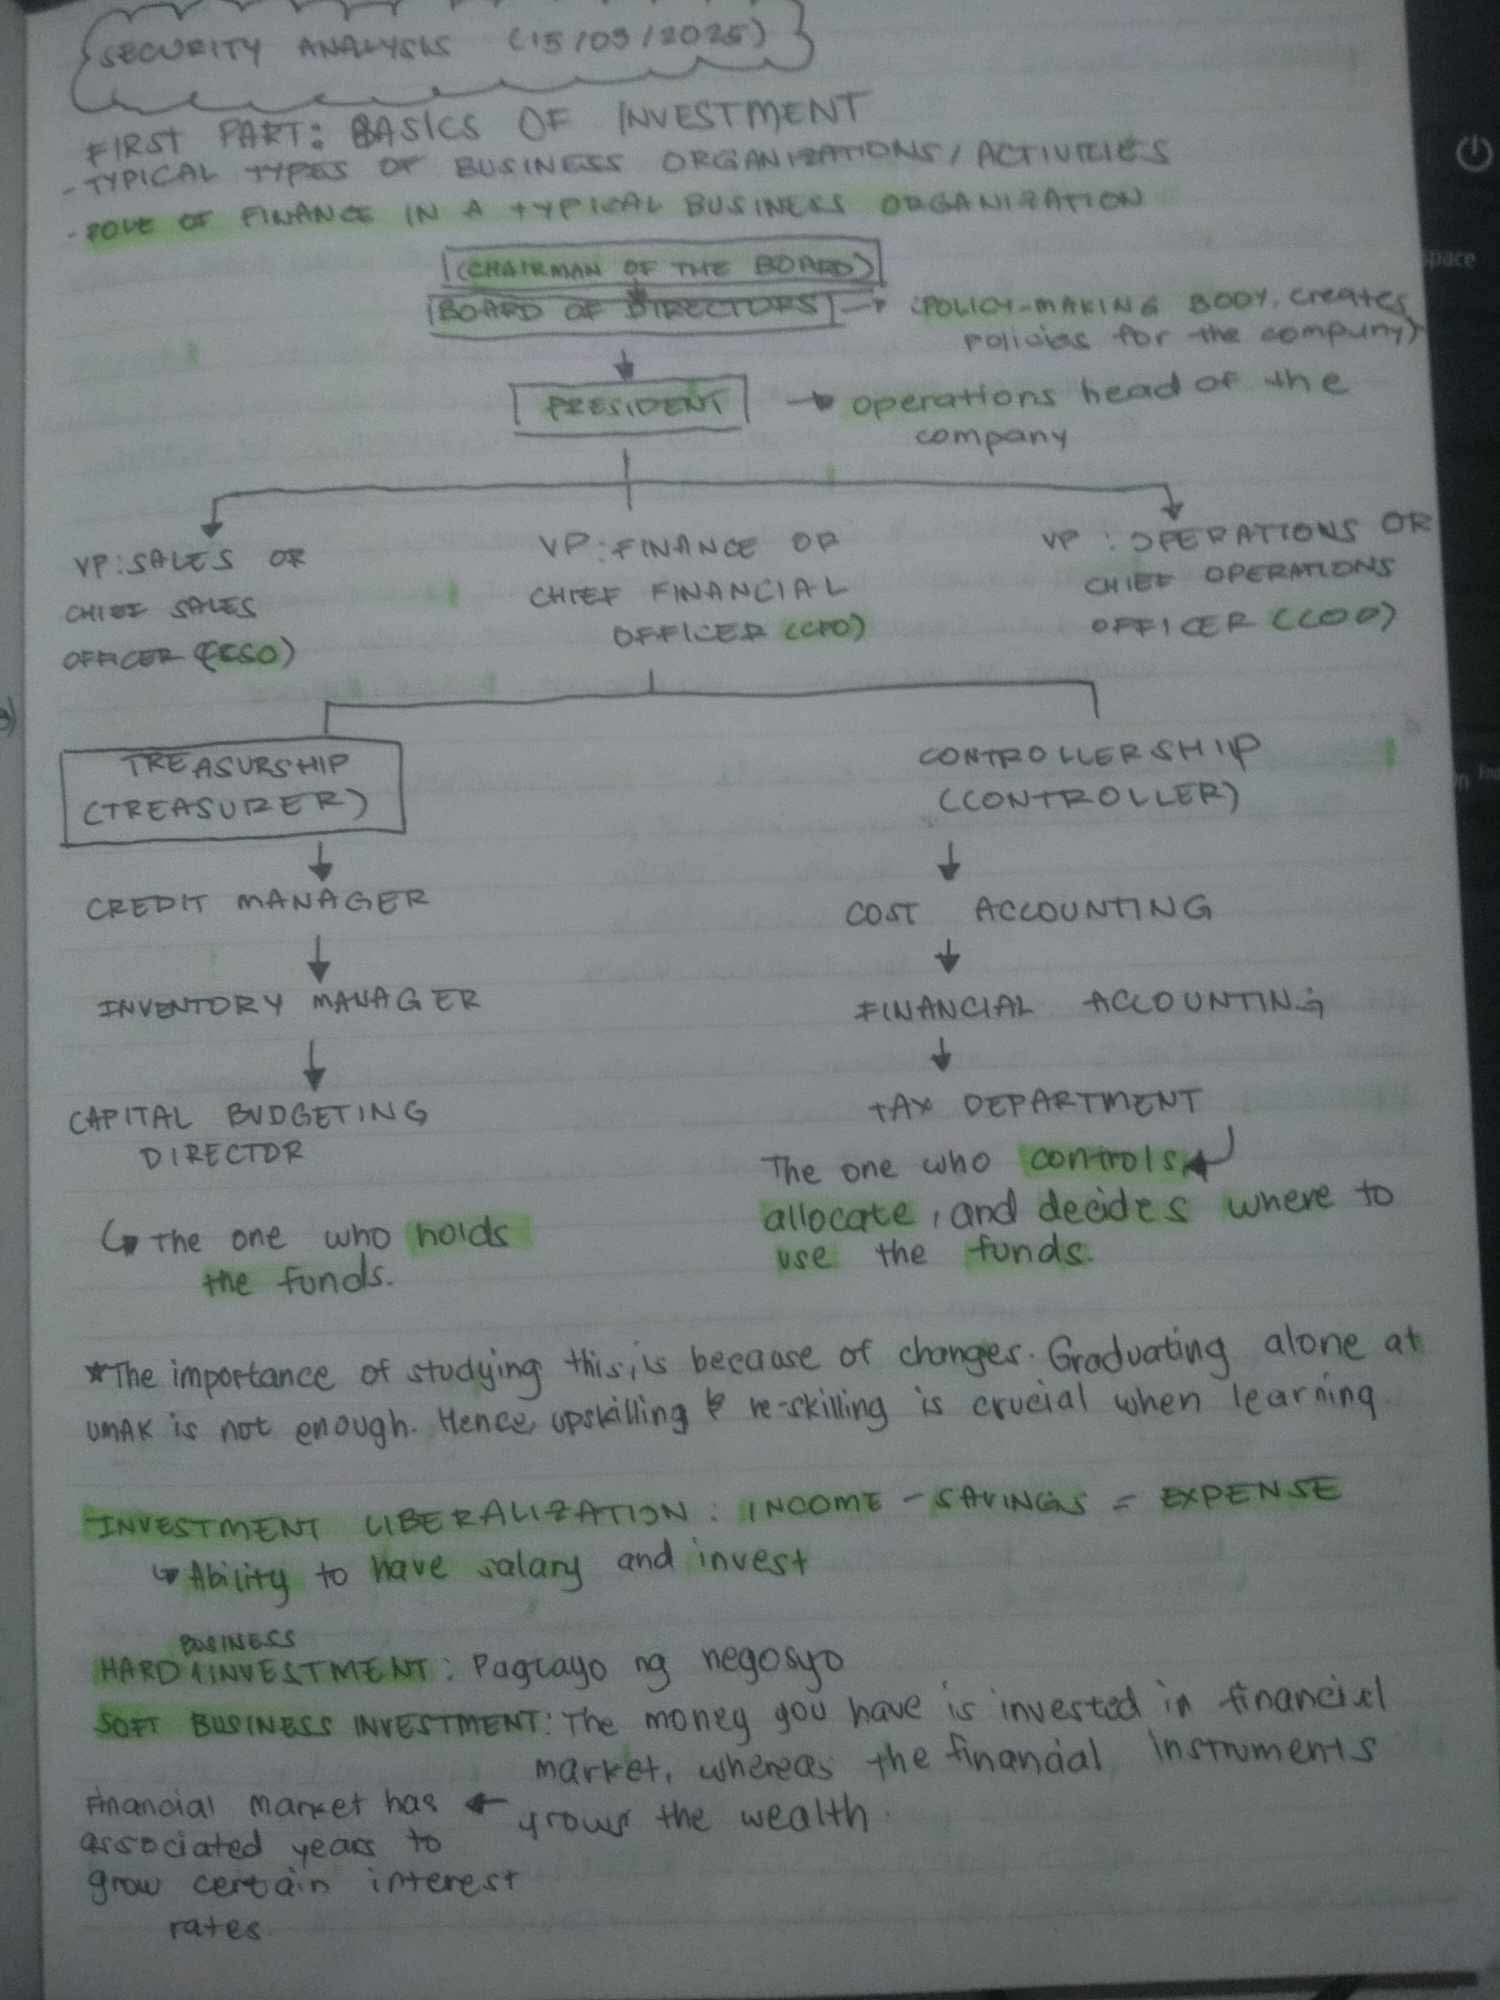 SECURITY ANALYSIS (15/03/2025)
FIRST PART: BASICS OF INVESTMENT
- TYPICAL TYPES OF BUSINESS ORGANIZATIONS / ACTIVITIES
- ROLE OF FINANCE IN A TYPICAL BUSINESS ORGANIZATION
(CHAIRMAN OF THE BOARD)
BOARD OF DIRECTORS → (POLICY-MAKING BODY, creates
policies for the company)
PRESIDENT → operations head of the
company
VP: SALES OR
CHIEF SALES
OFFICER (CSO)
VP: FINANCE OR
CHIEF FINANCIAL
OFFICER (CFO)
VP: OPERATIONS OR
CHIEF OPERATIONS
OFFICER (COO)
TREASURSHIP
(TREASURER)
CREDIT MANAGER
INVENTORY MANAGER
CAPITAL BUDGETING
DIRECTOR
↳ The one who holds
the funds.
CONTROLLERSHIP
(CONTROLLER)
COST ACCOUNTING
FINANCIAL ACCOUNTING
TAX DEPARTMENT
The one who controls
allocate, and decides where to
use the funds.
★The importance of studying this, is because of changes. Graduating alone at
UMAK is not enough. Hence, upskilling & re-skilling is crucial when learning.
INVESTMENT LIBERALIZATION: INCOME - SAVINGS = EXPENSE
↳ Ability to have salary and invest
BUSINESS
HARD ∧ INVESTMENT: Pagtayo ng negosyo
SOFT BUSINESS INVESTMENT: The money you have is invested in financial
market, whereas the financial instruments
grows the wealth.
Financial market has ←
associated years to
grow certain interest
rates.